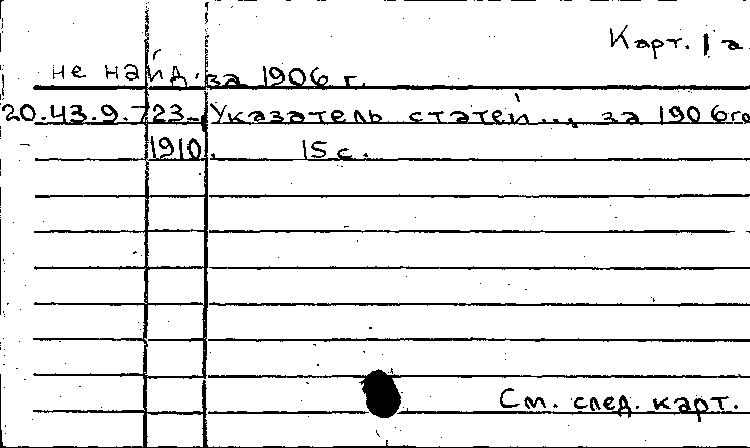 Карт. 1 а
не найд. за 1906 г.
20.43.9.723-1 Указатель статей..., за 1906 го
1910. 15 с.
См. след. карт.